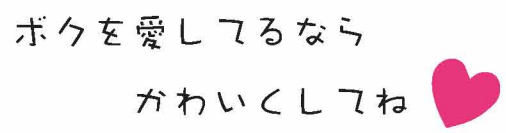 ボクを愛してるなら
かわいくしてね